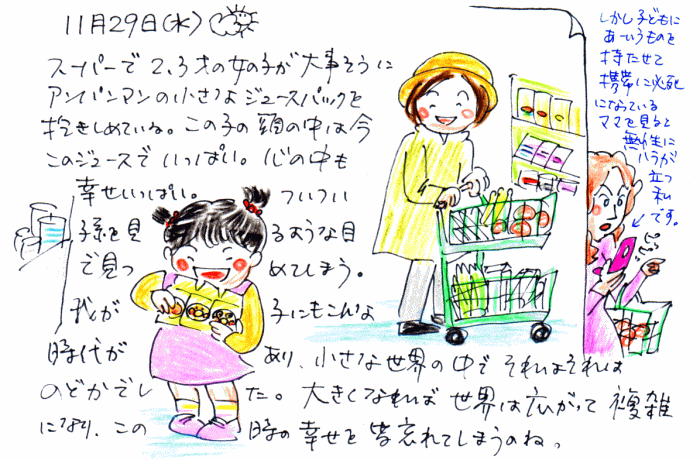 11月29日(水)
スーパーで2、3才の女の子が大事そうに
アンパンマンの小さなジュースパックを
抱きしめている。この子の頭の中は今
このジュースでいっぱい。心の中も
幸せいっぱい。ついつい
孫を見るような目
で見つめてしまう。
我が子にもこんな
時代があり、小さな世界の中でそれはそれは
のどかでした。大きくなれば世界は広がって複雑
になり、この時の幸せを皆忘れてしまうのね。
しかし子どもに
あーいうものを
持たせて
携帯に必死
になっている
ママを見ると
無性に
ハラが
立つ
私
です。